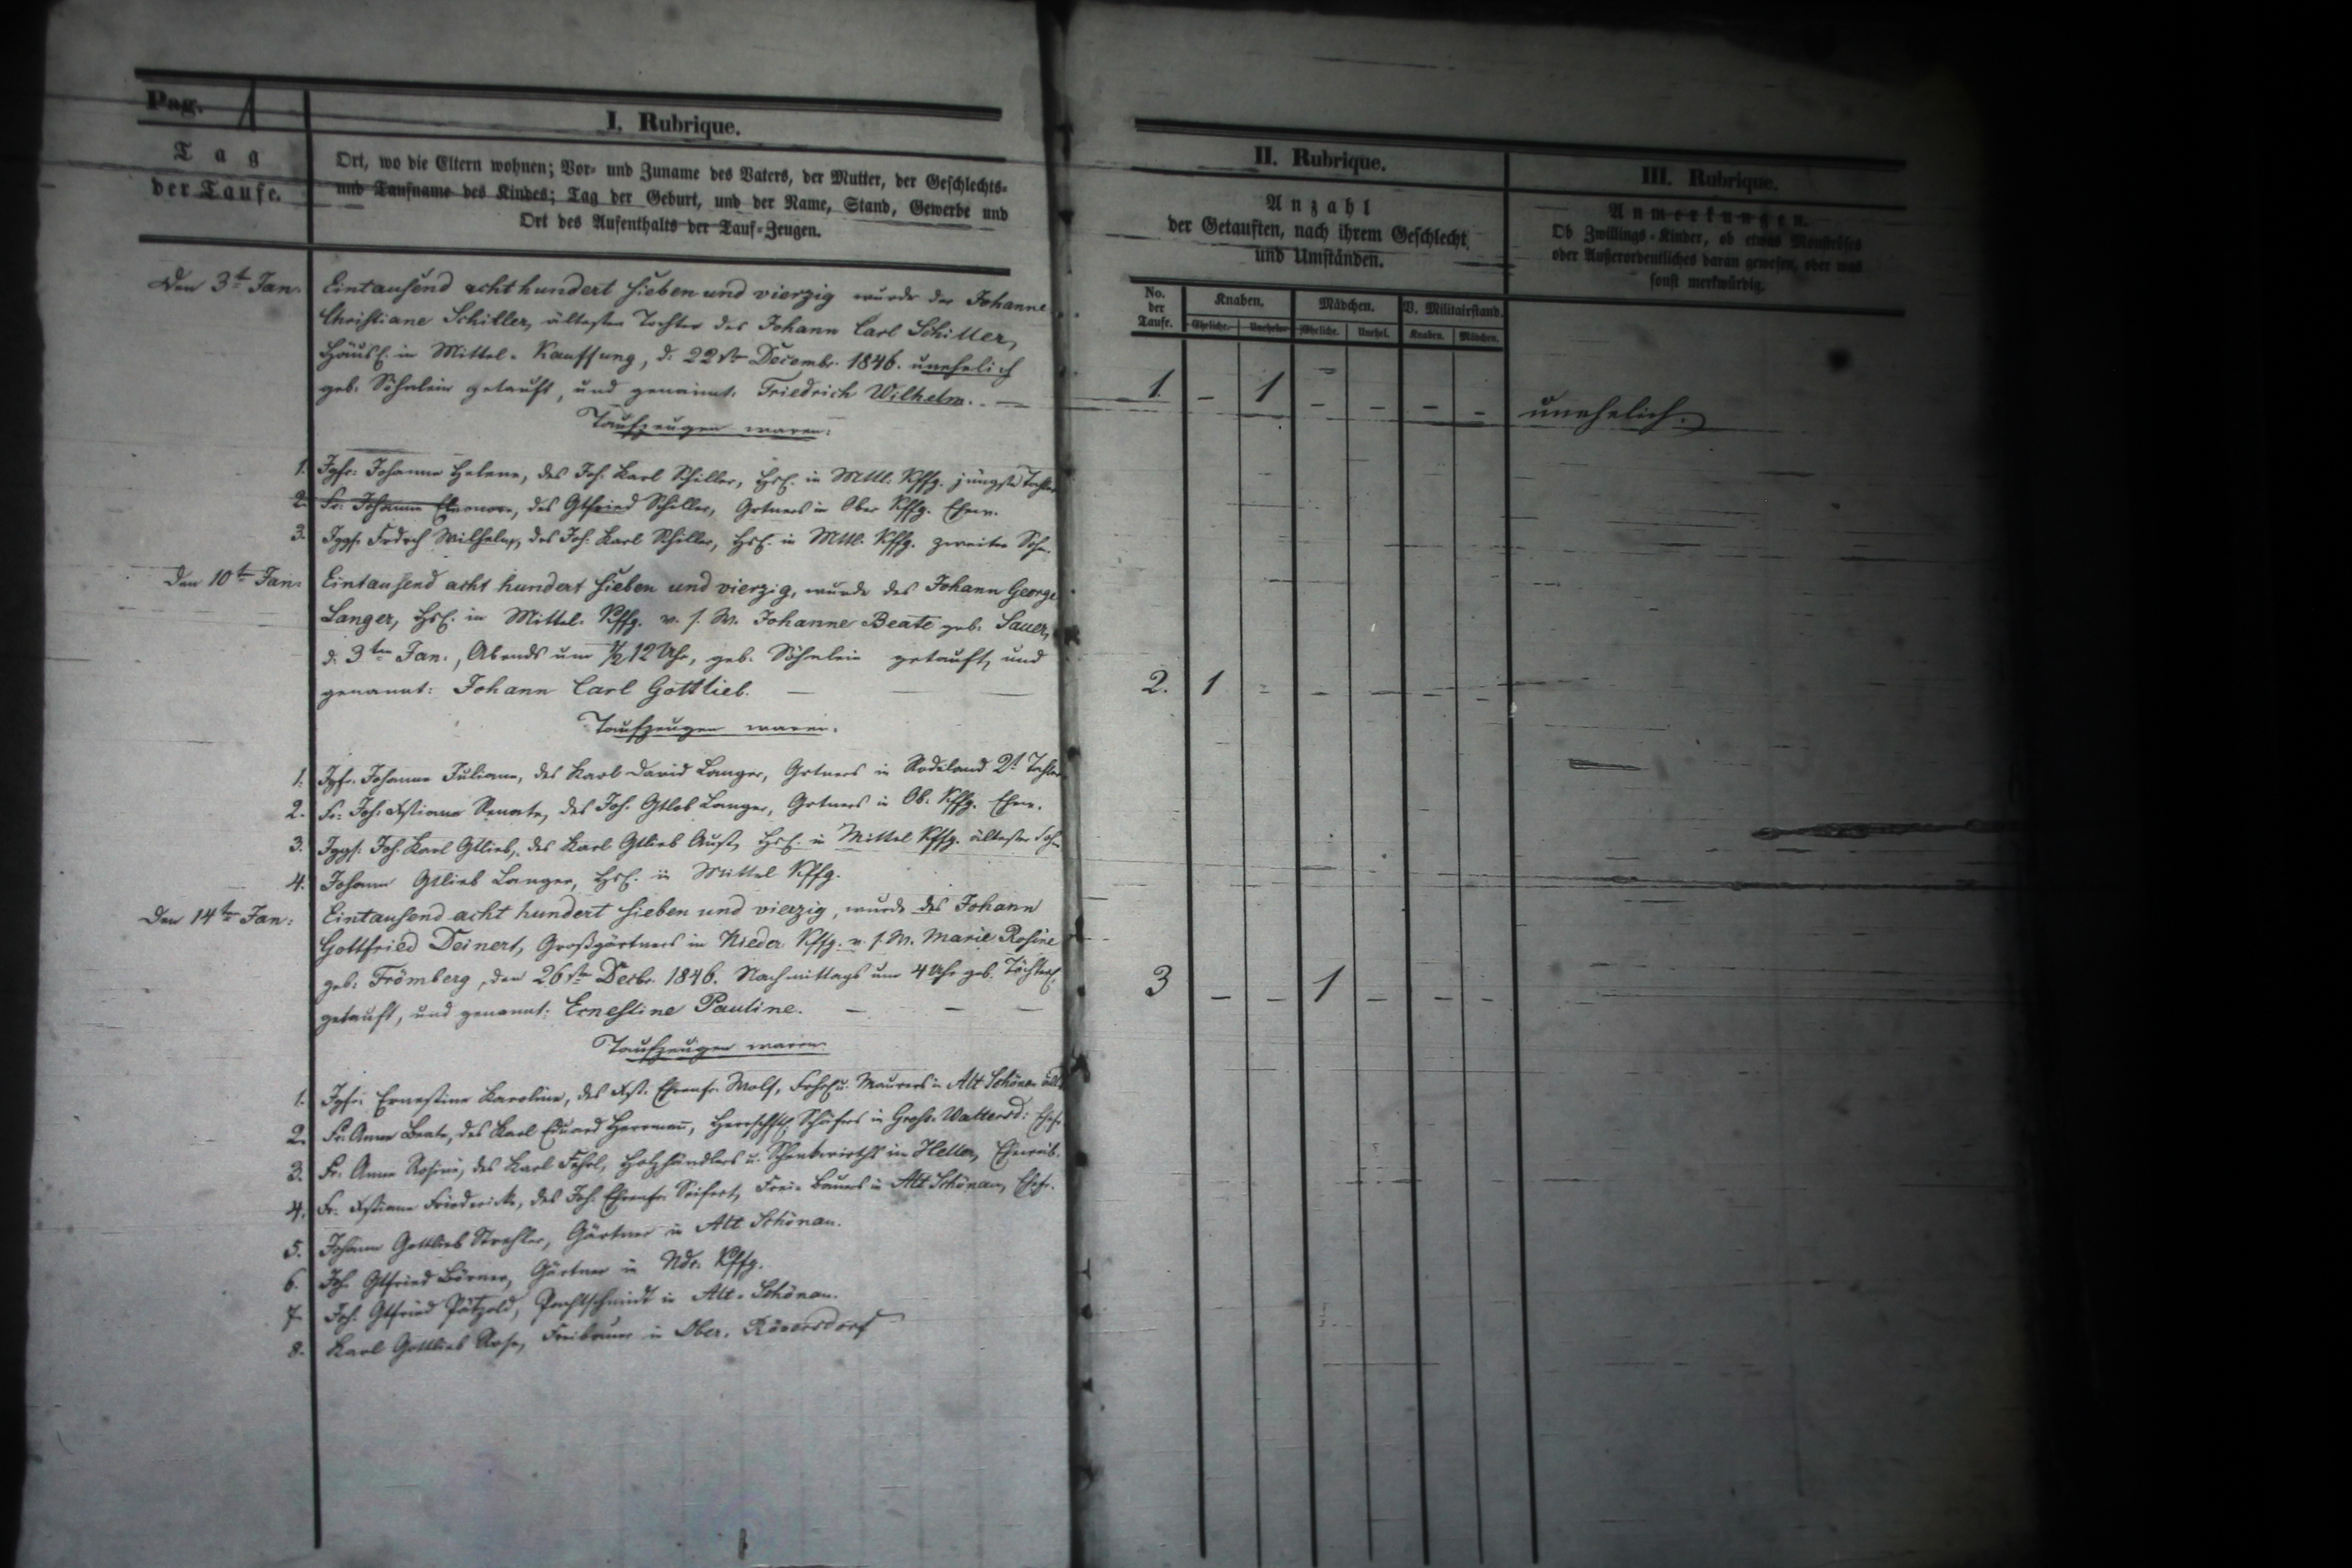 Pag. 1
I. Rubrique.
Tag
der Taufe.
Ort, wo die Eltern wohnen; Vor- und Zuname des Vaters, der Mutter, der Geschlechts-
und Taufname des Kindes; Tag der Geburt, und der Name, Stand, Gewerbe und
Ort des Aufenthalts der Tauf-Zeugen.
Den 3t Jan.
Eintausend achthundert sieben und vierzig wurde der Johanne
Christiane Schiller, ältesten Tochter des Johann Carl Schiller,
Häusl. in Mittel-Kauffung, d. 22st Decembr. 1846. unehelich
geb. Söhnlein getauft, und genannt: Friedrich Wilhelm. —
Taufzeugen waren:
1. Igfr. Johanne Helene, des Joh. Karl Schiller, Hsl. in Mttl. Kffg. jüngste Tochter
2. Fr. Johanne Eleonore, des Gtfried Schiller, Grtners in Ober Kffg. Ehew.
3. Iggs. Frdrch Wilhelm, des Joh. Karl Schiller, Hsl. in Mttl. Kffg. zweiter Sohn.
Den 10t Jan.
Eintausend acht hundert sieben und vierzig, wurde des Johann George
Langer, Hsl. in Mittel. Kffg. v. s. W. Johanne Beate geb. Sauer,
d. 3ten Jan., Abends um 1/2 12 Uhr, geb. Söhnlein getauft, und
genannt: Johann Carl Gottlieb. — — —
Taufzeugen waren.
1. Igfr. Johanne Juliane, des Karl David Langer, Grtners in Rodeland 2t Tochter
2. Fr. Joh. Xstiane Renate, des Joh. Gtlob Langer, Grtners in Ob. Kffg. Ehew.
3. Iggs. Joh. Karl Gtlieb, des Karl Gtlieb Aust, Hsl. in Mittel Kffg. ältester Sohn
4. Johann Gtlieb Langer, Hsl. in Mittel Kffg.
Den 14ten Jan:
Eintausend acht hundert sieben und vierzig, wurde des Johann
Gottfried Deinert, Großgärtners in Nieder Kffg. v. s. W. Marie Rosine
geb: Frömberg, den 26st Decbr. 1846. Nachmittags um 4 Uhr geb. Töchterl.
getauft, und genannt: Ernestine Pauline. — — —
Taufzeugen waren.
1. Igfr. Ernestine Karoline, des Xst. Ehrenfr. Wolf, u. Maurers in Alt Schönau
2. Fr. Anne Beate, des Karl Eduard Herrmann, Herrschftl. Schäfers in Groß. Waltersd: Ehefr.
3. Fr. Anne Rosine, des Karl Holzhändlers u. Schenkwirths im Eheweib.
4. Fr. Xstiane Friedericke, des Joh. Ehrenfr. Seifert, Frei-Bauers in Alt Schönau, Ehefr.
5. Johann Gottlieb Strehler, Gärtner in Alt Schönau.
6. Joh. Gtfried Börner, Gärtner in Ndr. Kffg.
7. Joh. Gtfried Pätzold, Pachtschmidt in Alt-Schönau.
8. Karl Gottlieb Rose, Freibauer in Ober. Röversdorf
II. Rubrique.
Anzahl
der Getauften, nach ihrem Geschlecht
und Umständen.
No. der Taufe.
Knaben. Mädchen. V. Militairstand.
Eheliche. Unehel. Eheliche. Unehel. Knaben. Mädchen.
1. – 1 – – – –
2. 1 – – – – –
3 – – 1 – – –
III. Rubrique.
Anmerkungen.
Ob Zwillings-Kinder, ob etwas Monströses
oder Außerordentliches daran gewesen, oder was
sonst merkwürdig.
unehelich.